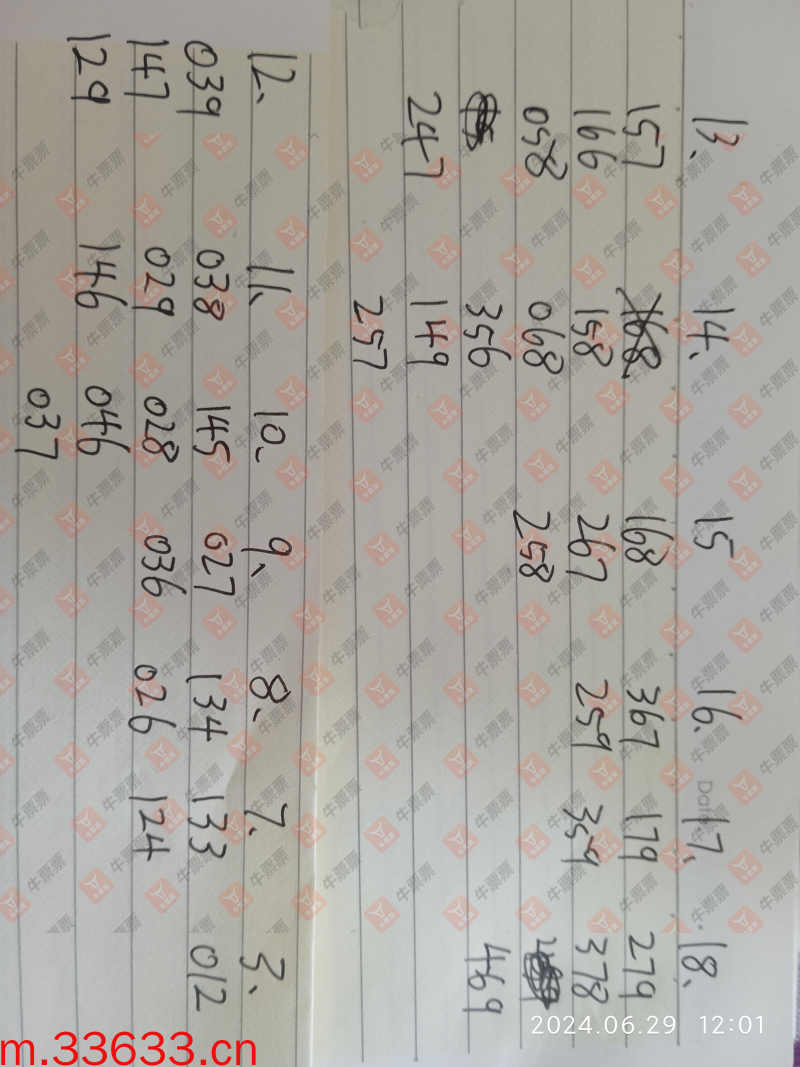 Date
13. 14. 15 16. 17. 18.
157 168 168 367 179 279
166 158 267 259 359 378
058 068 258
356 469
247 149
257
12. 11. 10. 9. 8. 7. 3.
039 038 145 027 134 133 012
147 029 028 036 026 124
129 146 046
037
牛票票
2024.06.29 12:01
m.33633.cn